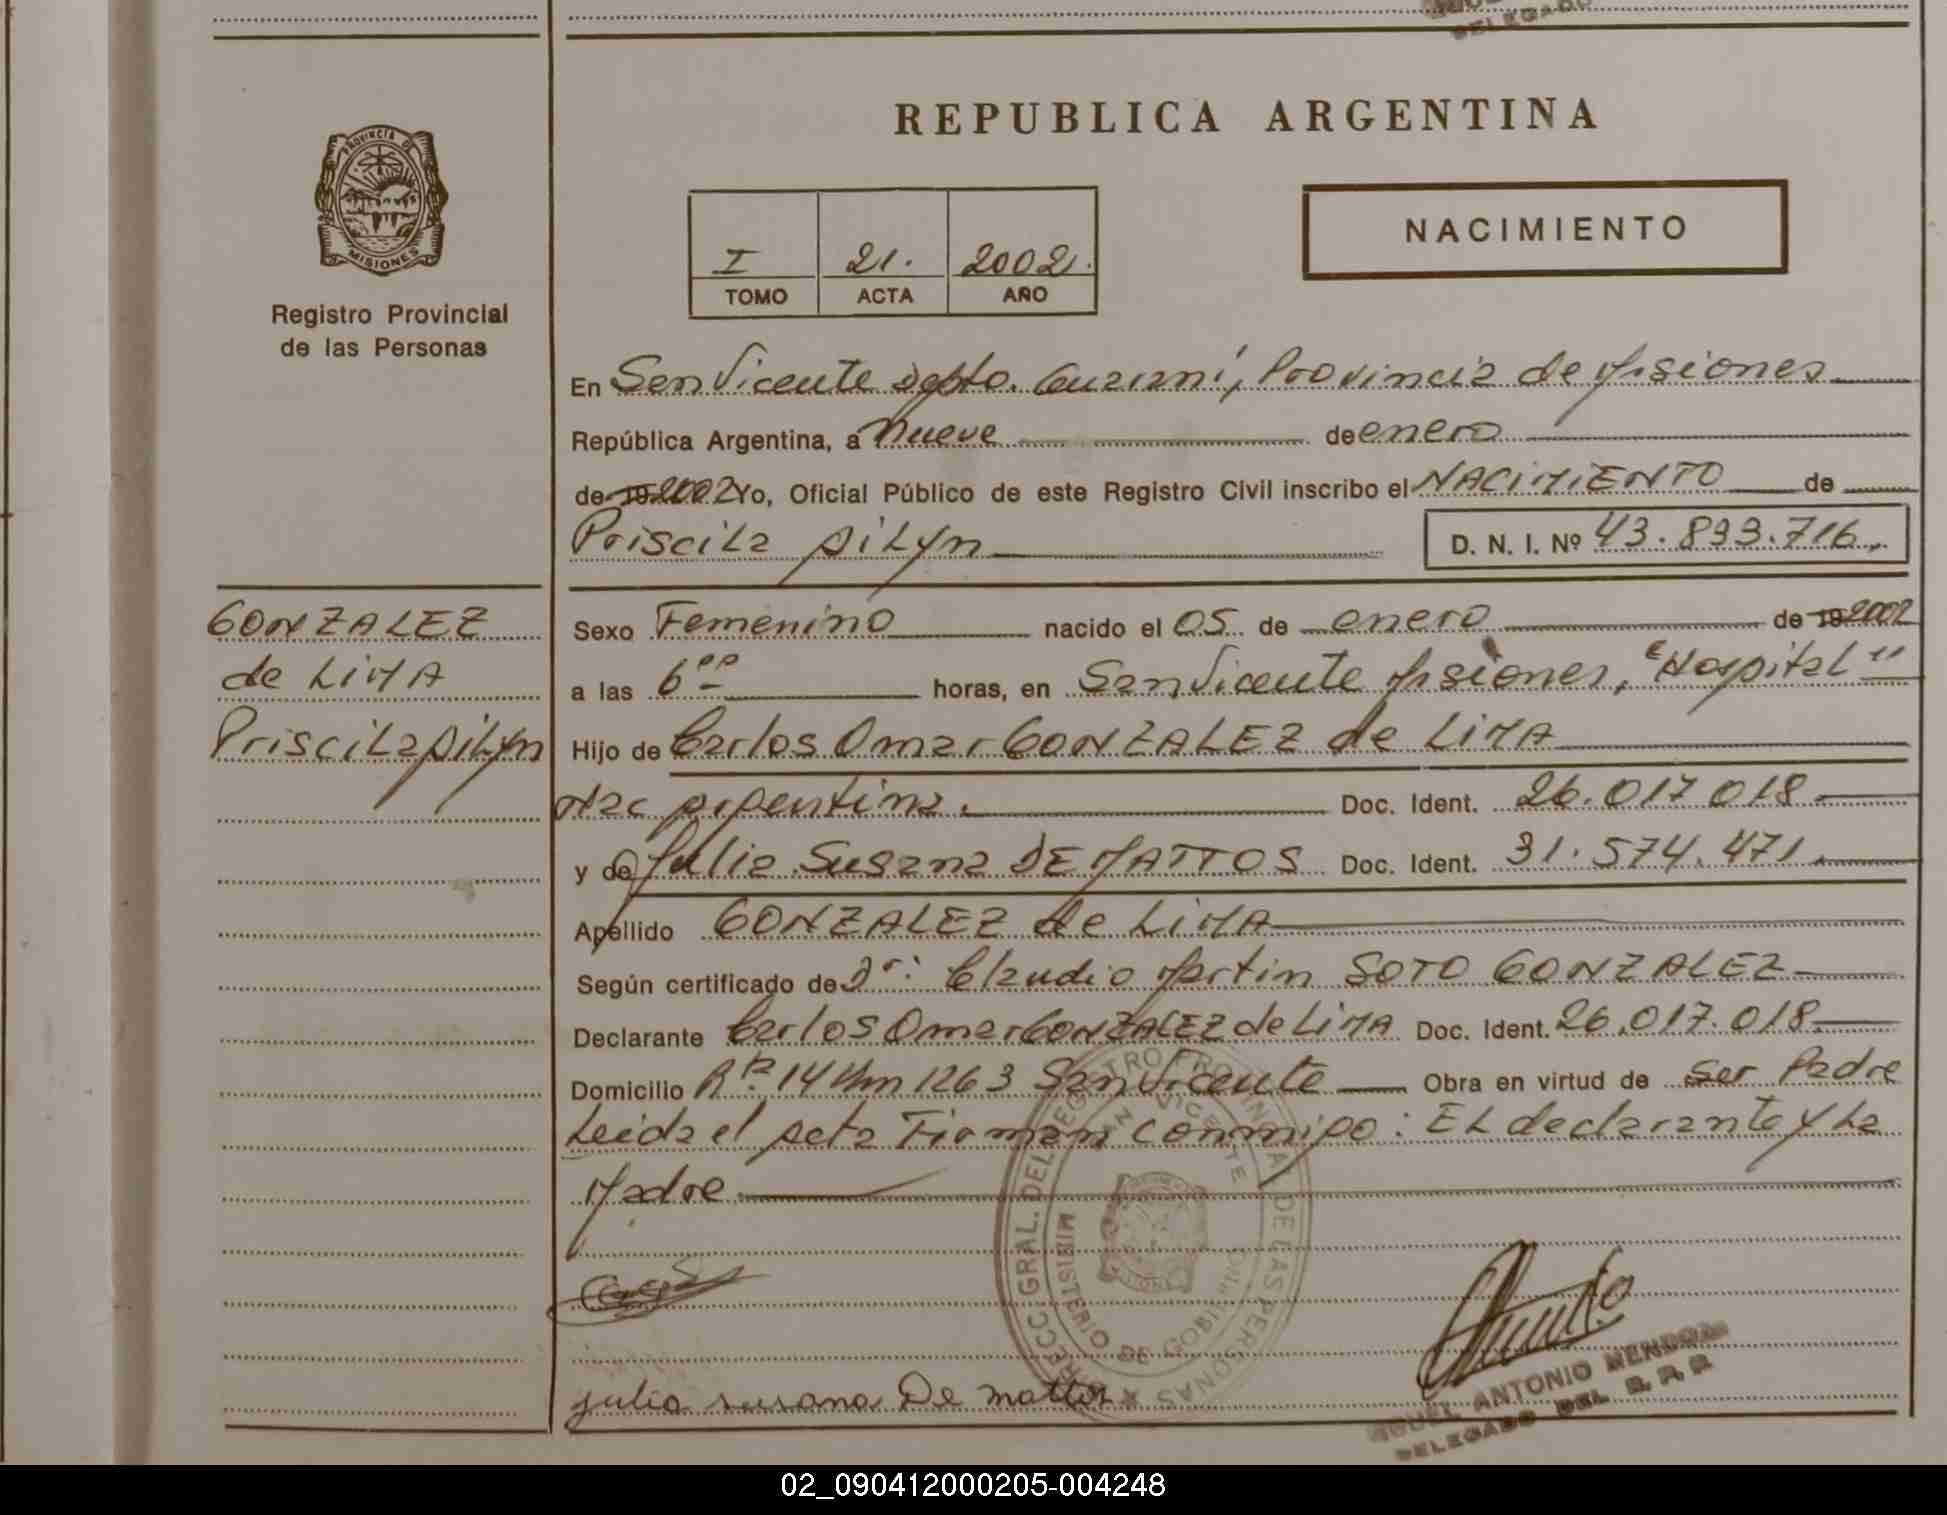 DELEGADO
PROVINCIA DE
MISIONES
Registro Provincial
de las Personas
REPUBLICA ARGENTINA
I 21. 2002.
TOMO ACTA AÑO
NACIMIENTO
En San Vicente Depto. Guaraní, Provincia de Misiones
República Argentina, a nueve de enero
de 19 2002 Yo, Oficial Público de este Registro Civil inscribo el NACIMIENTO de
Priscila Ailyn D. N. I. Nº 43.893.716
GONZALEZ
de LIMA
Priscila Ailyn
Sexo Femenino nacido el 05 de enero de 19 2002
a las 6 horas, en San Vicente Misiones, "Hospital"
Hijo de Carlos Omar GONZALEZ de LIMA
Nac Argentina. Doc. Ident. 26.017.018
y de Julia Susana DE MATTOS Doc. Ident. 31.574.471.
Apellido GONZALEZ de LIMA
Según certificado de Dr: Claudio Martin SOTO GONZALEZ
Declarante Carlos Omar GONZALEZ de LIMA Doc. Ident. 26.017.018
Domicilio Rta. 14 Km 1263 San Vicente Obra en virtud de ser Padre
Leida el Acta Firman conmigo: El declarante y La
Madre
REGISTRO PROVINCIAL DE LAS PERSONAS
SAN VICENTE
MINISTERIO DE GOBIERNO
julia susana De mattos
MIGUEL ANTONIO MENDOZA
DELEGADO DEL R. P. P.
02_090412000205-004248